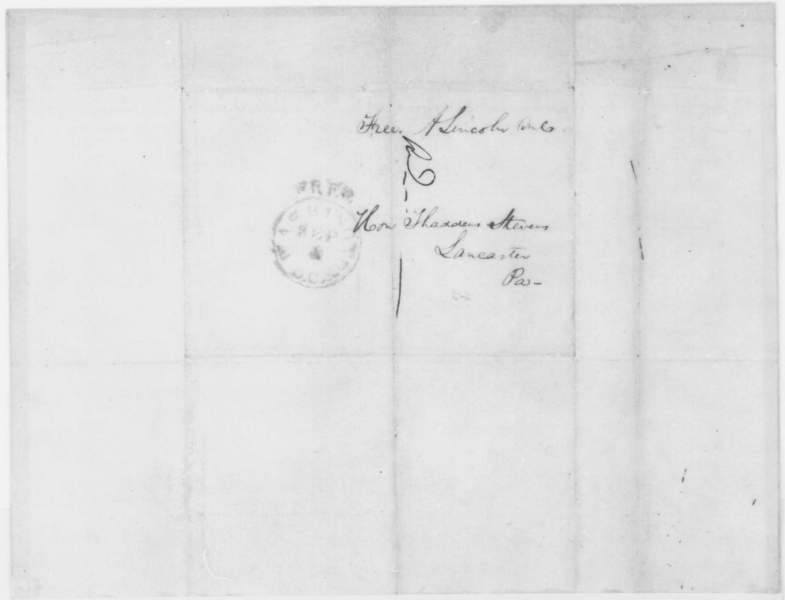 Free. A Lincoln M C
FREE
WASHINGTON
SEP
4
D.C.
Hon Thaddeus Stevens
Lancaster
Pa-